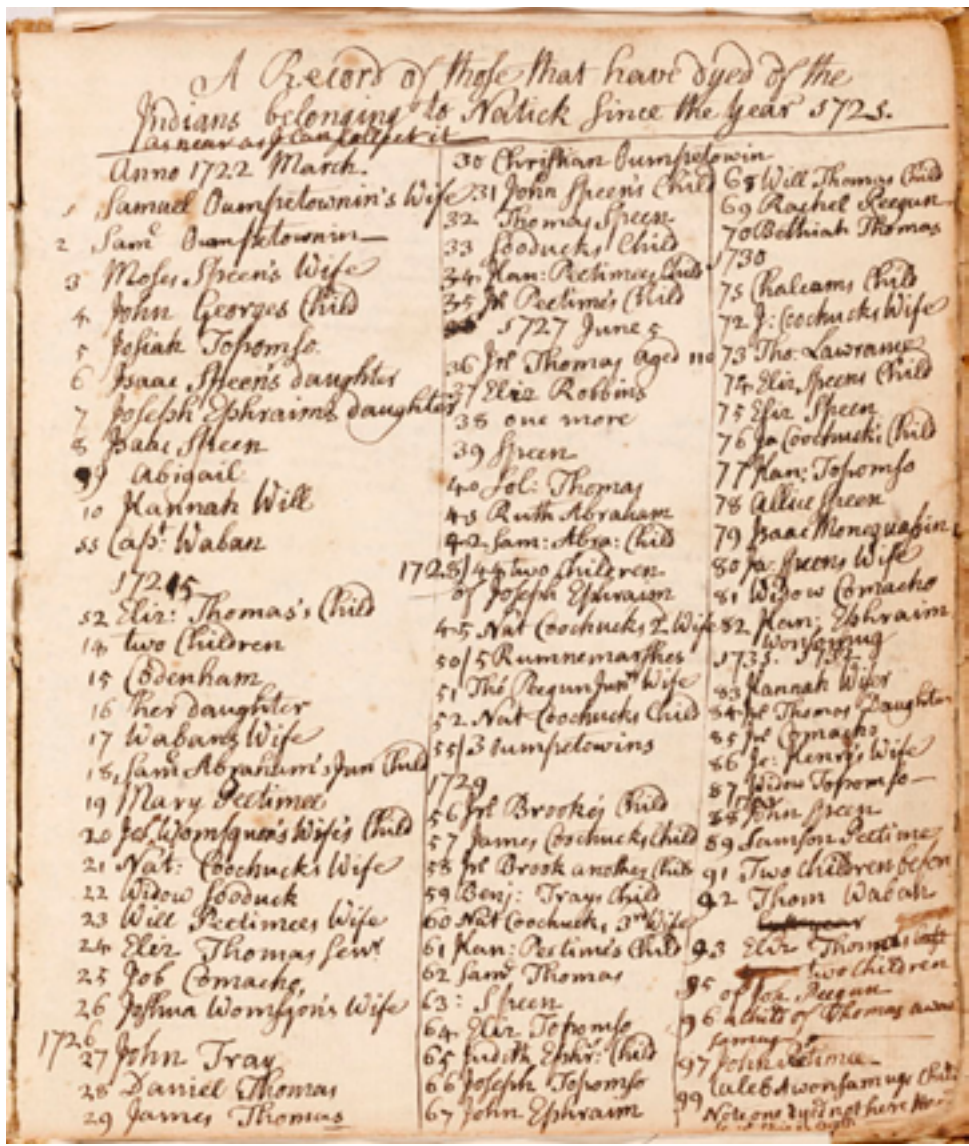 A Record of those that have dyed of the
Indians belonging to Natick Since the Year 1721.
as near as I can collect it
Anno 1722 March.
1 Samuel Oumpetownin's Wife
2 Sam.l Oumpetownin
3 Moses Speen's Wife
4 John Georges Child
5 Josiah Topomso
6 Isaac Speen's daughter
7 Joseph Ephraim's daughter
8 Isaac Speen
9 Abigail
10 Hannah Will
11 Capt. Waban
12 Eliz: Thomas's Child
14 two Children
15 Codenham
16 her daughter
17 Waban's Wife
18 Sam.l Abraham's Jun Child
19 Mary Peetimee
20 Wife's Child
21 Nat: Coochucks Wife
22 Widow Sooduck
23 Will Peetimees Wife
24 Eliz Thomas Sen.r
25 Job Comacho,
26 Joshua Womsqon's Wife
1726
27 John Tray
28 Daniel Thomas
29 James Thomas
30 Christian Oumpetowin
31 John Speen's Child
32 Thomas Speen
33 Sooducks Child
34 Han: Peetimees Child
35 Jos Peetime's Child
1727 June 5
36 Jos Thomas aged 110
37 Eliz Robbins
38 one more
39 Speen
40 Sol: Thomas
41 Ruth Abraham
42 Sam: Abra: Child
1728/44 two Children
of Joseph Ephraim
45 Nat Coochucks 2 Wife
50/5 Rumnemarshes
51 Tho Peegun Jun.r Wife
52 Nat Coochucks Child
55/3 Oumpetowins
1729
56 Jos Brooke's Child
57 James Coochucks Child
58 Jos Brook another Child
59 Benj: Trays Child
60 Nat Coochucks 3.d Wife
61 Han: Peetime's Child
62 Sam.l Thomas
63: Speen
64 Eliz Topomso
65 Judith Ephr: Child
66 Joseph Topomso
67 John Ephraim
68 Will Thomas Child
69 Rachel Peegun
70 Bethiah Thomas
1730
71 Chaleams Child
72 J: Coochucks Wife
73 Tho: Lawrance
74 Eliz Speens Child
75 Eliz Speen
76 Ja Coochuck's Child
77 Han: Topomso
78 Allice Speen
79 Isaac Monequasin
80 Ja: Speens Wife
81 Widow Comacho
82 Han: Ephraim
1731. 1732
83 Hannah
84 Jos Thomas Daughter
85 Jos Comacho
86 Jo: Henry's Wife
87 Widow Topomso
88 John Speen
89 Samson Peetime
91 Two Children before
92 Thom Waban
93 Eliz Thomas
two Children
95 of Jos Peegun
96 a Child of Thomas
97 John Petimee
Caleb Awonsamugs Child
99 Note one dyed not here